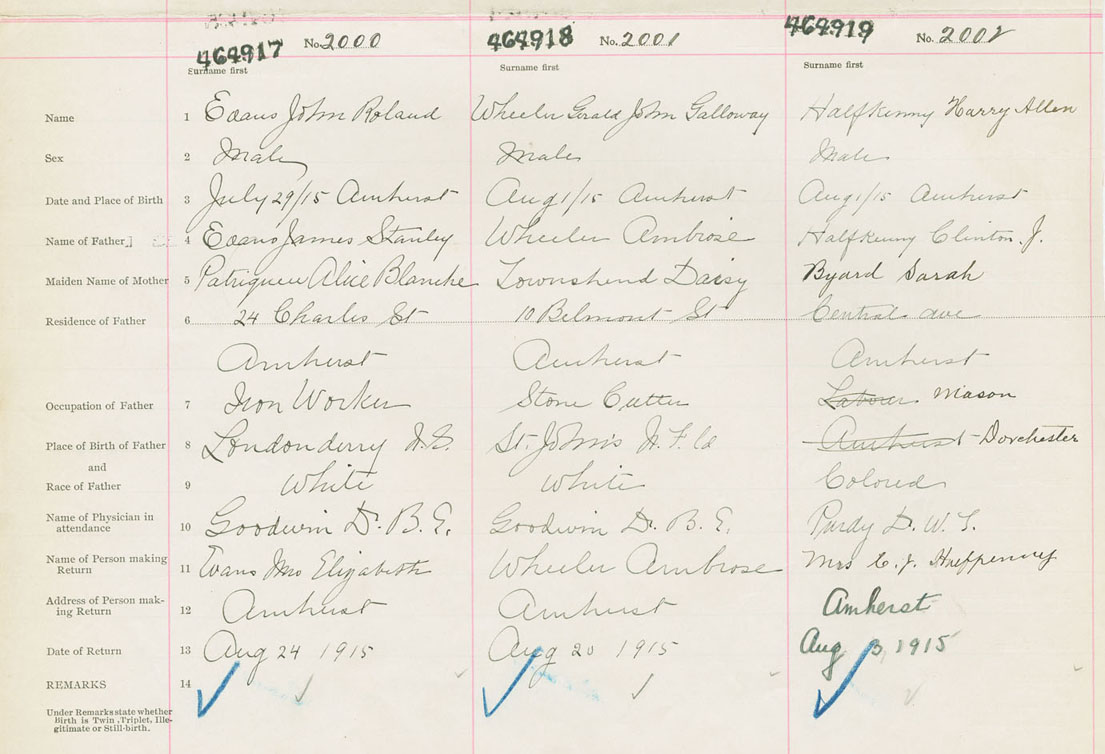 464917 No. 2000 464918 No. 2001 464919 No. 2002
Surname first Surname first Surname first
Name 1 Evans John Roland Wheeler Gerald John Galloway Halfkenny Harry Allen
Sex 2 Male Male Male
Date and Place of Birth 3 July 29/15 Amherst Aug 1/15 Amherst Aug 1/15 Amherst
Name of Father 4 Evans James Stanley Wheeler Ambrose Halfkenny Clinton. J.
Maiden Name of Mother 5 Patriquen Alice Blanche Townshend Daisy Byard Sarah
Residence of Father 6 24 Charles St 10 Belmont St Central Ave
Amherst Amherst Amherst
Occupation of Father 7 Iron Worker Stone Cutter Laborer Mason
Place of Birth of Father 8 Londonderry N.S. St. John's N.F.ld Amherst - Dorchester
and
Race of Father 9 White White Colored
Name of Physician in
attendance 10 Goodwin D. B. E. Goodwin D. B. E. Purdy D. W. T.
Name of Person making
Return 11 Evans Mrs Elizabeth Wheeler Ambrose Mrs C. J. Halfpenny
Address of Person mak-
ing Return 12 Amherst Amherst Amherst
Date of Return 13 Aug 24 1915 Aug 20 1915 Aug 3, 1915
REMARKS 14
Under Remarks state whether
Birth is Twin, Triplet, Ille-
gitimate or Still-birth.